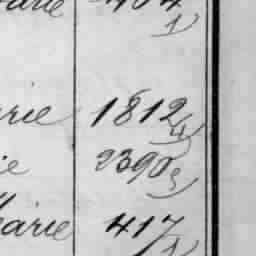 1)
rie 1812
4)
ie 2390
3)
arie 417
1)